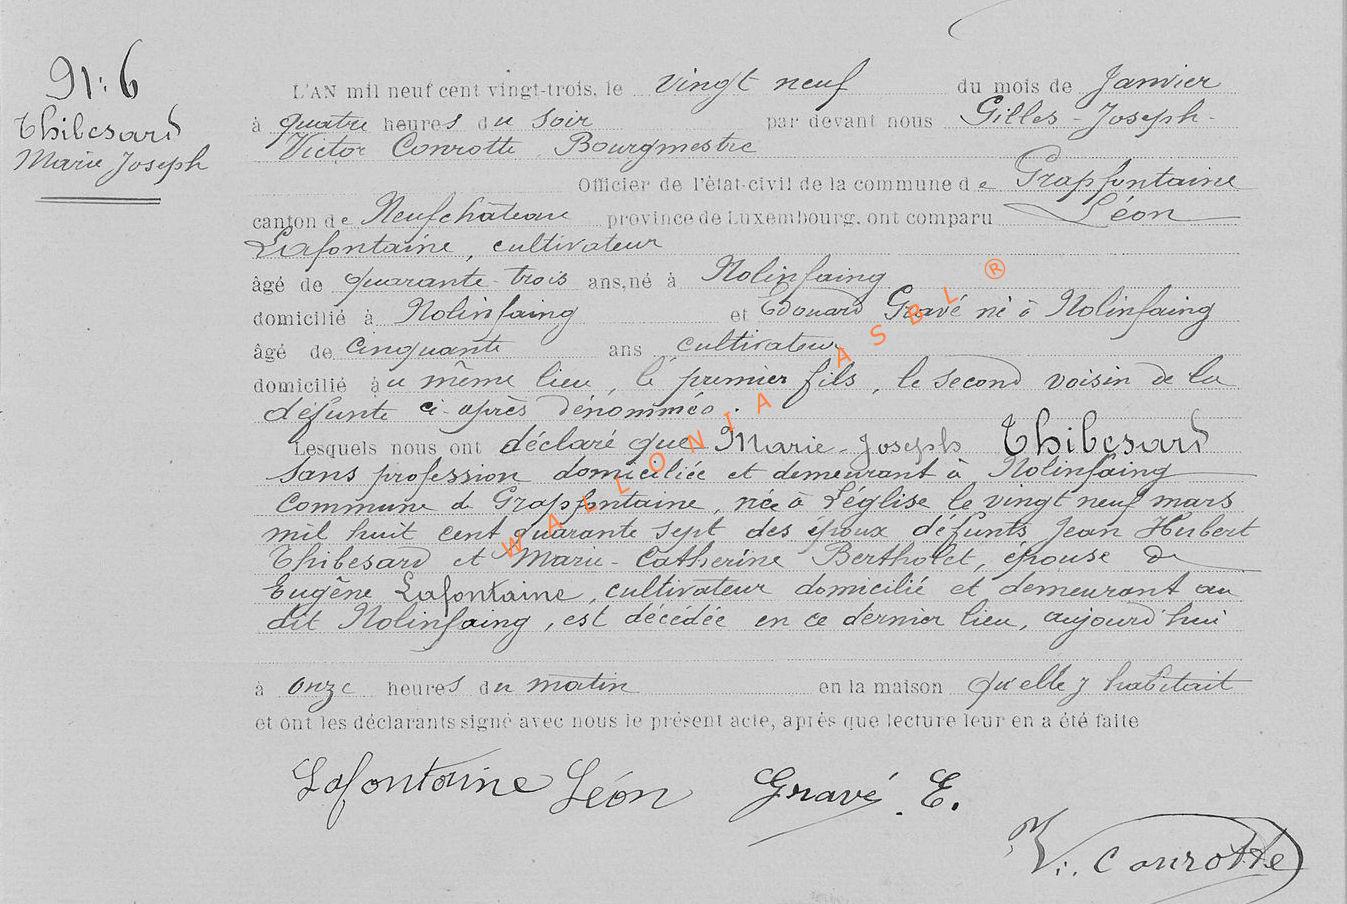 N: 6
Thibesard
Marie Joseph
L'AN mil neuf cent vingt-trois, le vingt neuf du mois de Janvier
à quatre heures du soir par devant nous Gilles-Joseph-
Victor Conrotte, Bourgmestre
Officier de l'état-civil de la commune de Grapfontaine
canton de Neufchâteau province de Luxembourg, ont comparu Léon
Lafontaine, cultivateur
âgé de quarante-trois ans, né à Nolinfaing
domicilié à Nolinfaing et Edouard Gravé né à Nolinfaing
âgé de cinquante ans cultivateur
domicilié au même lieu, le premier fils, le second voisin de la
défunte ci-après dénommée.
Lesquels nous ont déclaré que Marie-Joseph Thibesard
sans profession domiciliée et demeurant à Nolinfaing
Commune de Grapfontaine, née à Léglise le vingt neuf mars
mil huit cent quarante sept des époux défunts Jean Hubert
Thibesard et Marie-Catherine Bertholet, épouse de
Eugêne Lafontaine, cultivateur domicilié et demeurant au
dit Nolinfaing, est décédée en ce dernier lieu, aujourd'hui
à onze heures du matin en la maison qu'elle y habitait
et ont les déclarants signé avec nous le présent acte, après que lecture leur en a été faite
Lafontaine Léon Gravé E.
V. Conrotte
WALLONIA ASBL ®